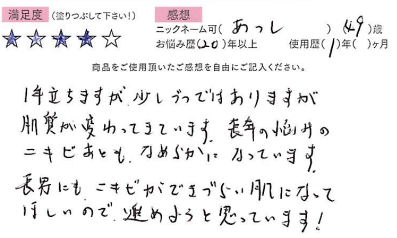 満足度 (塗りつぶして下さい!)
感想
ニックネーム可( あっし ) (49)歳
お悩み歴(20)年以上 使用歴(1)年( )ヶ月
商品をご使用頂いたご感想を自由にご記入ください。
1年立ちますが、少しづつではありますが
肌質が変わってきています。長年の悩みの
ニキビあとも、なめらかになっています。
長男にも、ニキビができづらい肌になって
ほしいので、進めようと思っています!